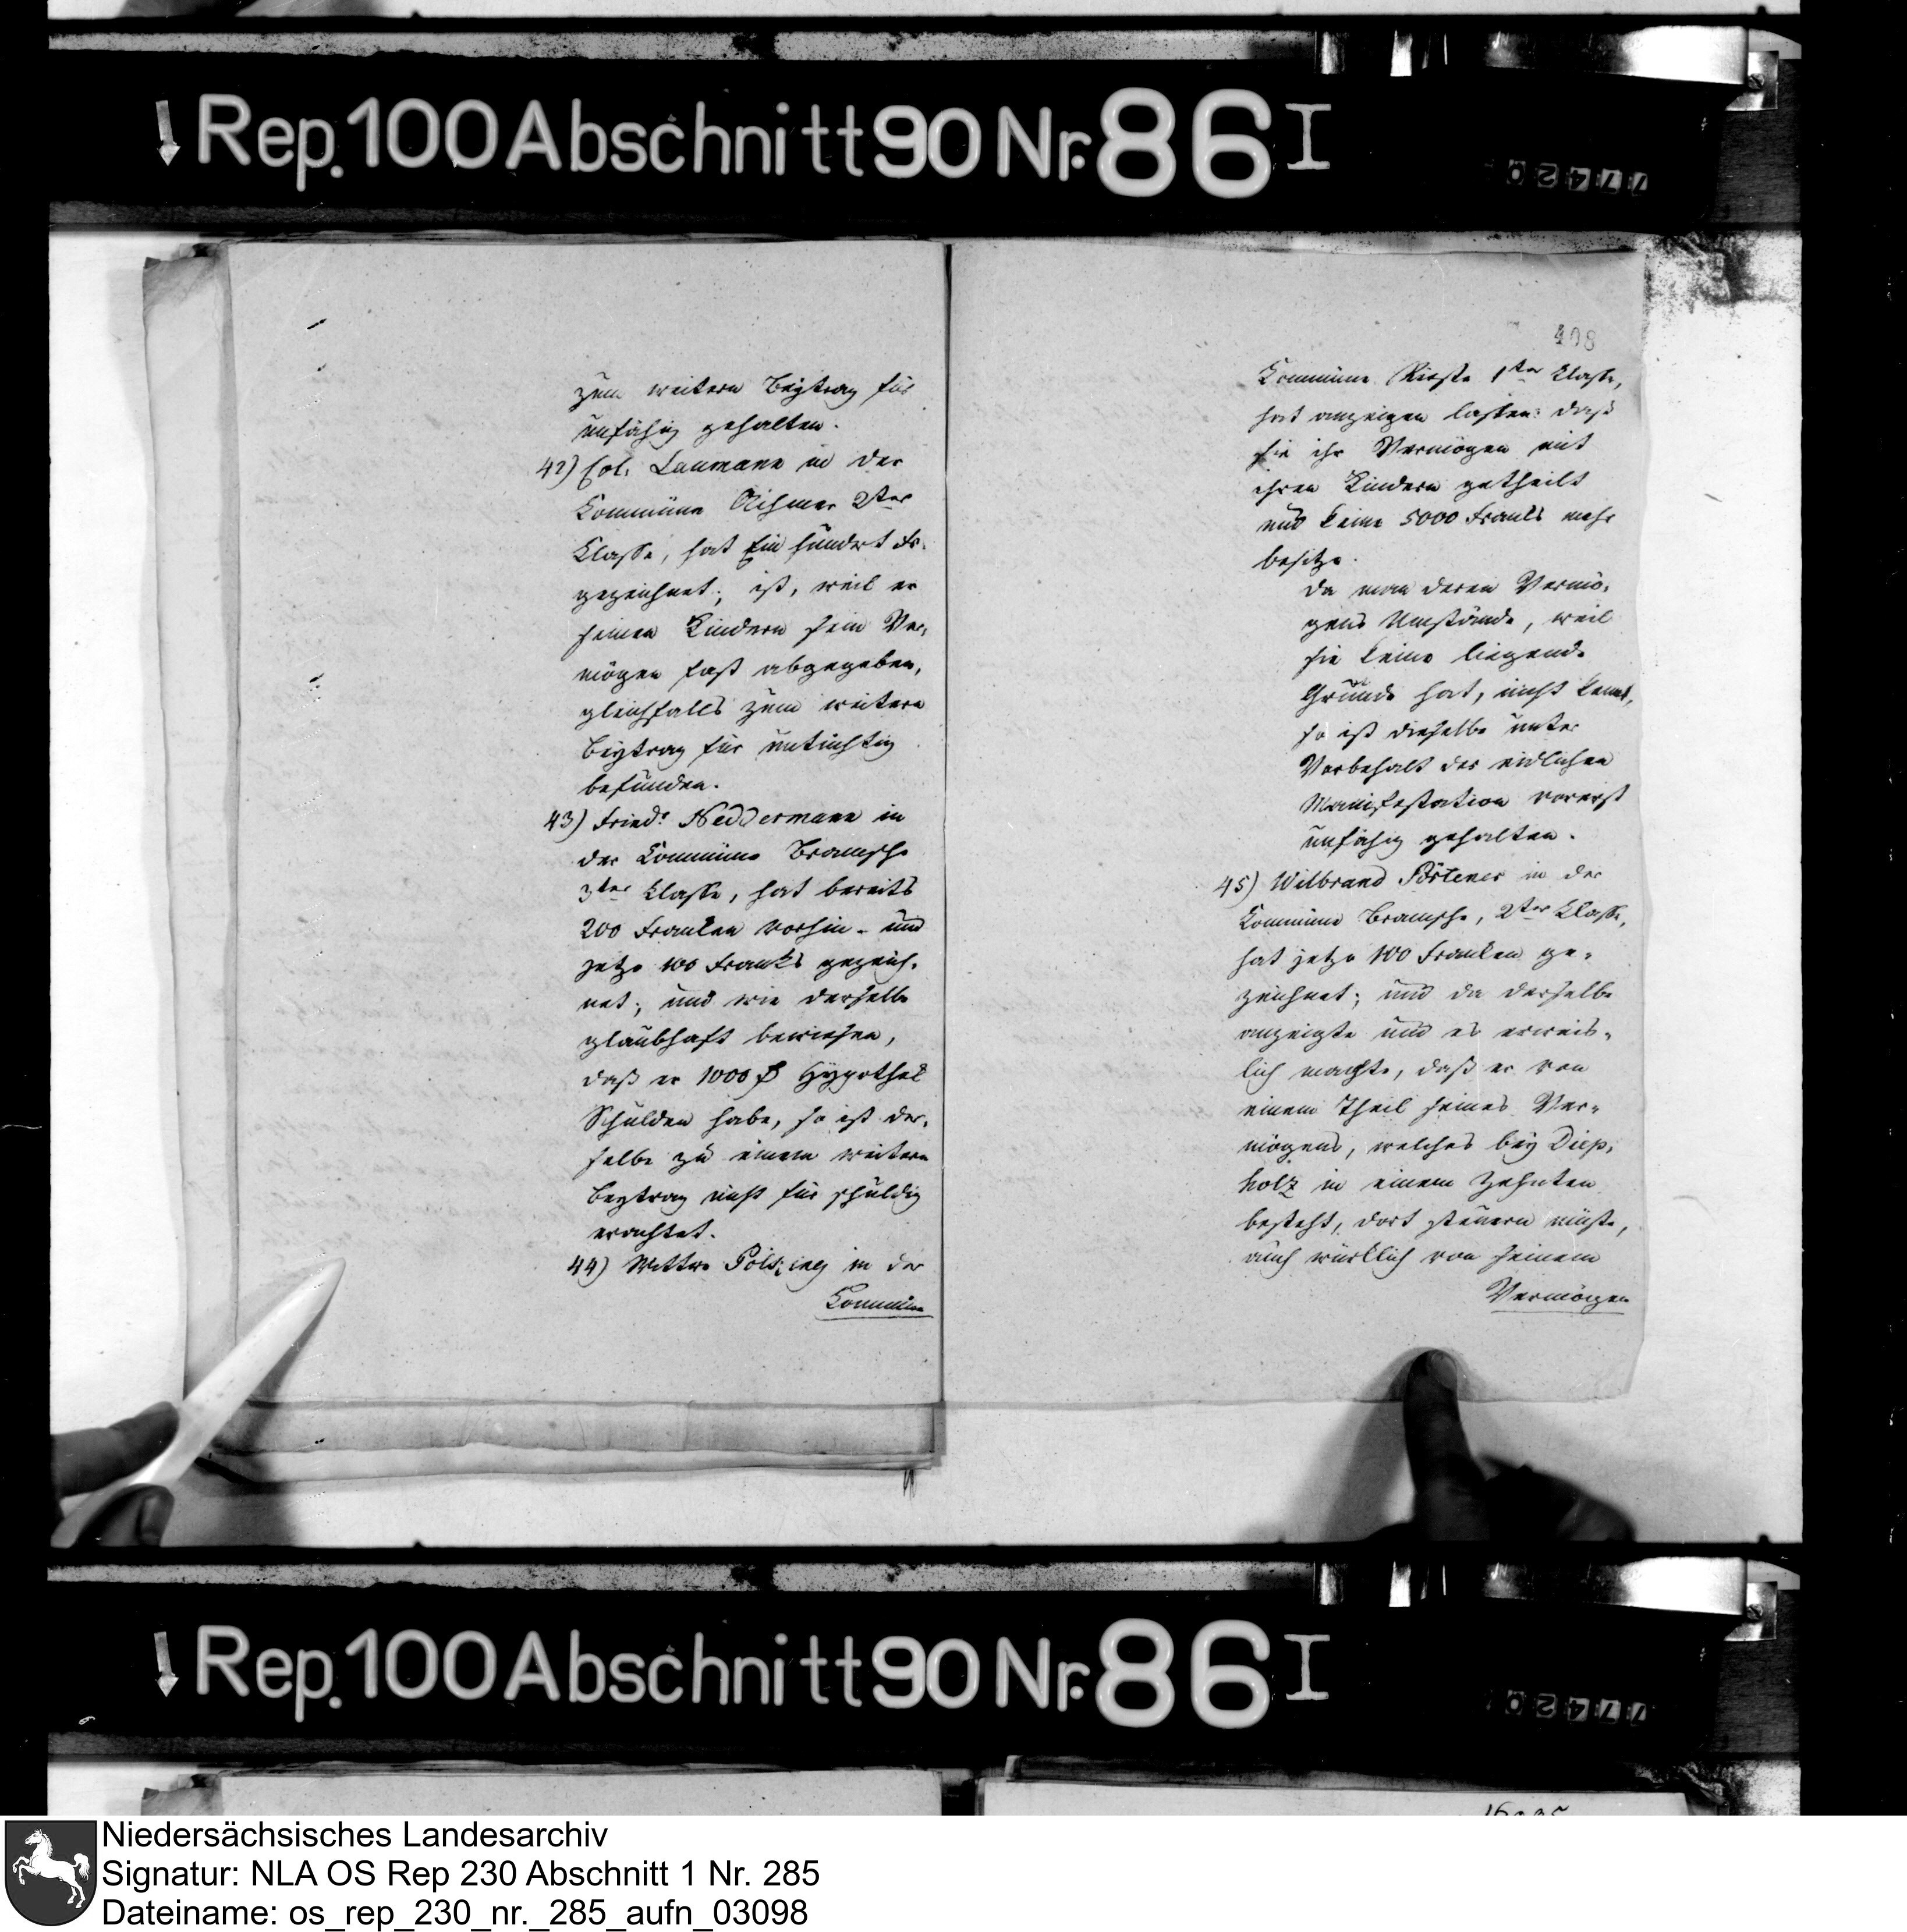 Rep. 100 Abschnitt 90 Nr. 86 I
77420
zum weitern Beytrag für
unfähig gehalten.
42) Col. Laumann in der
Commüne 2ter
Classe, hat Ein hundert Fr.
gezeichnet; ist, weil er
seinen Kindern sein Ver-
mögen fast abgegeben,
gleichfalls zum weitern
Beytrag für untüchtig
befunden.
43) Fried: Neddermann in
der Commüne Bramsche
3ter Classe, hat bereits
200 Franken vorhin - und
jetzo 100 Franks gezeich-
net; und wie derselbe
glaubhaft bewiesen,
daß er 1000 Hypothek
Schulden habe, so ist der-
selbe zu einem weitern
Beytrag nicht für schuldig
erachtet.
44) Wittwe in der
Commüne
408
Commüne Rieste 1ter Classe,
hat anzeigen lassen: daß
sie ihr Vermögen mit
ihren Kindern getheilt
und keine 5000 Franks mehr
besitze.
Da man deren Vermö-
gens Umstände, weil
sie keine liegende
Gründe hat, nicht kennt,
so ist dieselbe unter
Vorbehalt der eidlichen
Manifestation vorerst
unfähig gehalten.
45) Wilbrand Pörtener in der
Commüne Bramsche, 2ter Classe,
hat jetzo 100 Franken ge-
zeichnet; und da derselbe
anzeigte und es erweis-
lich machte, daß er von
einem Theil seines Ver-
mögens, welches bey Diep-
holz in einem Zehnten
besteht, dort steuern müste,
auch würklich von seinem
Vermögen
Rep. 100 Abschnitt 90 Nr. 86 I
77420
Niedersächsisches Landesarchiv
Signatur: NLA OS Rep 230 Abschnitt 1 Nr. 285
Dateiname: os_rep_230_nr._285_aufn_03098